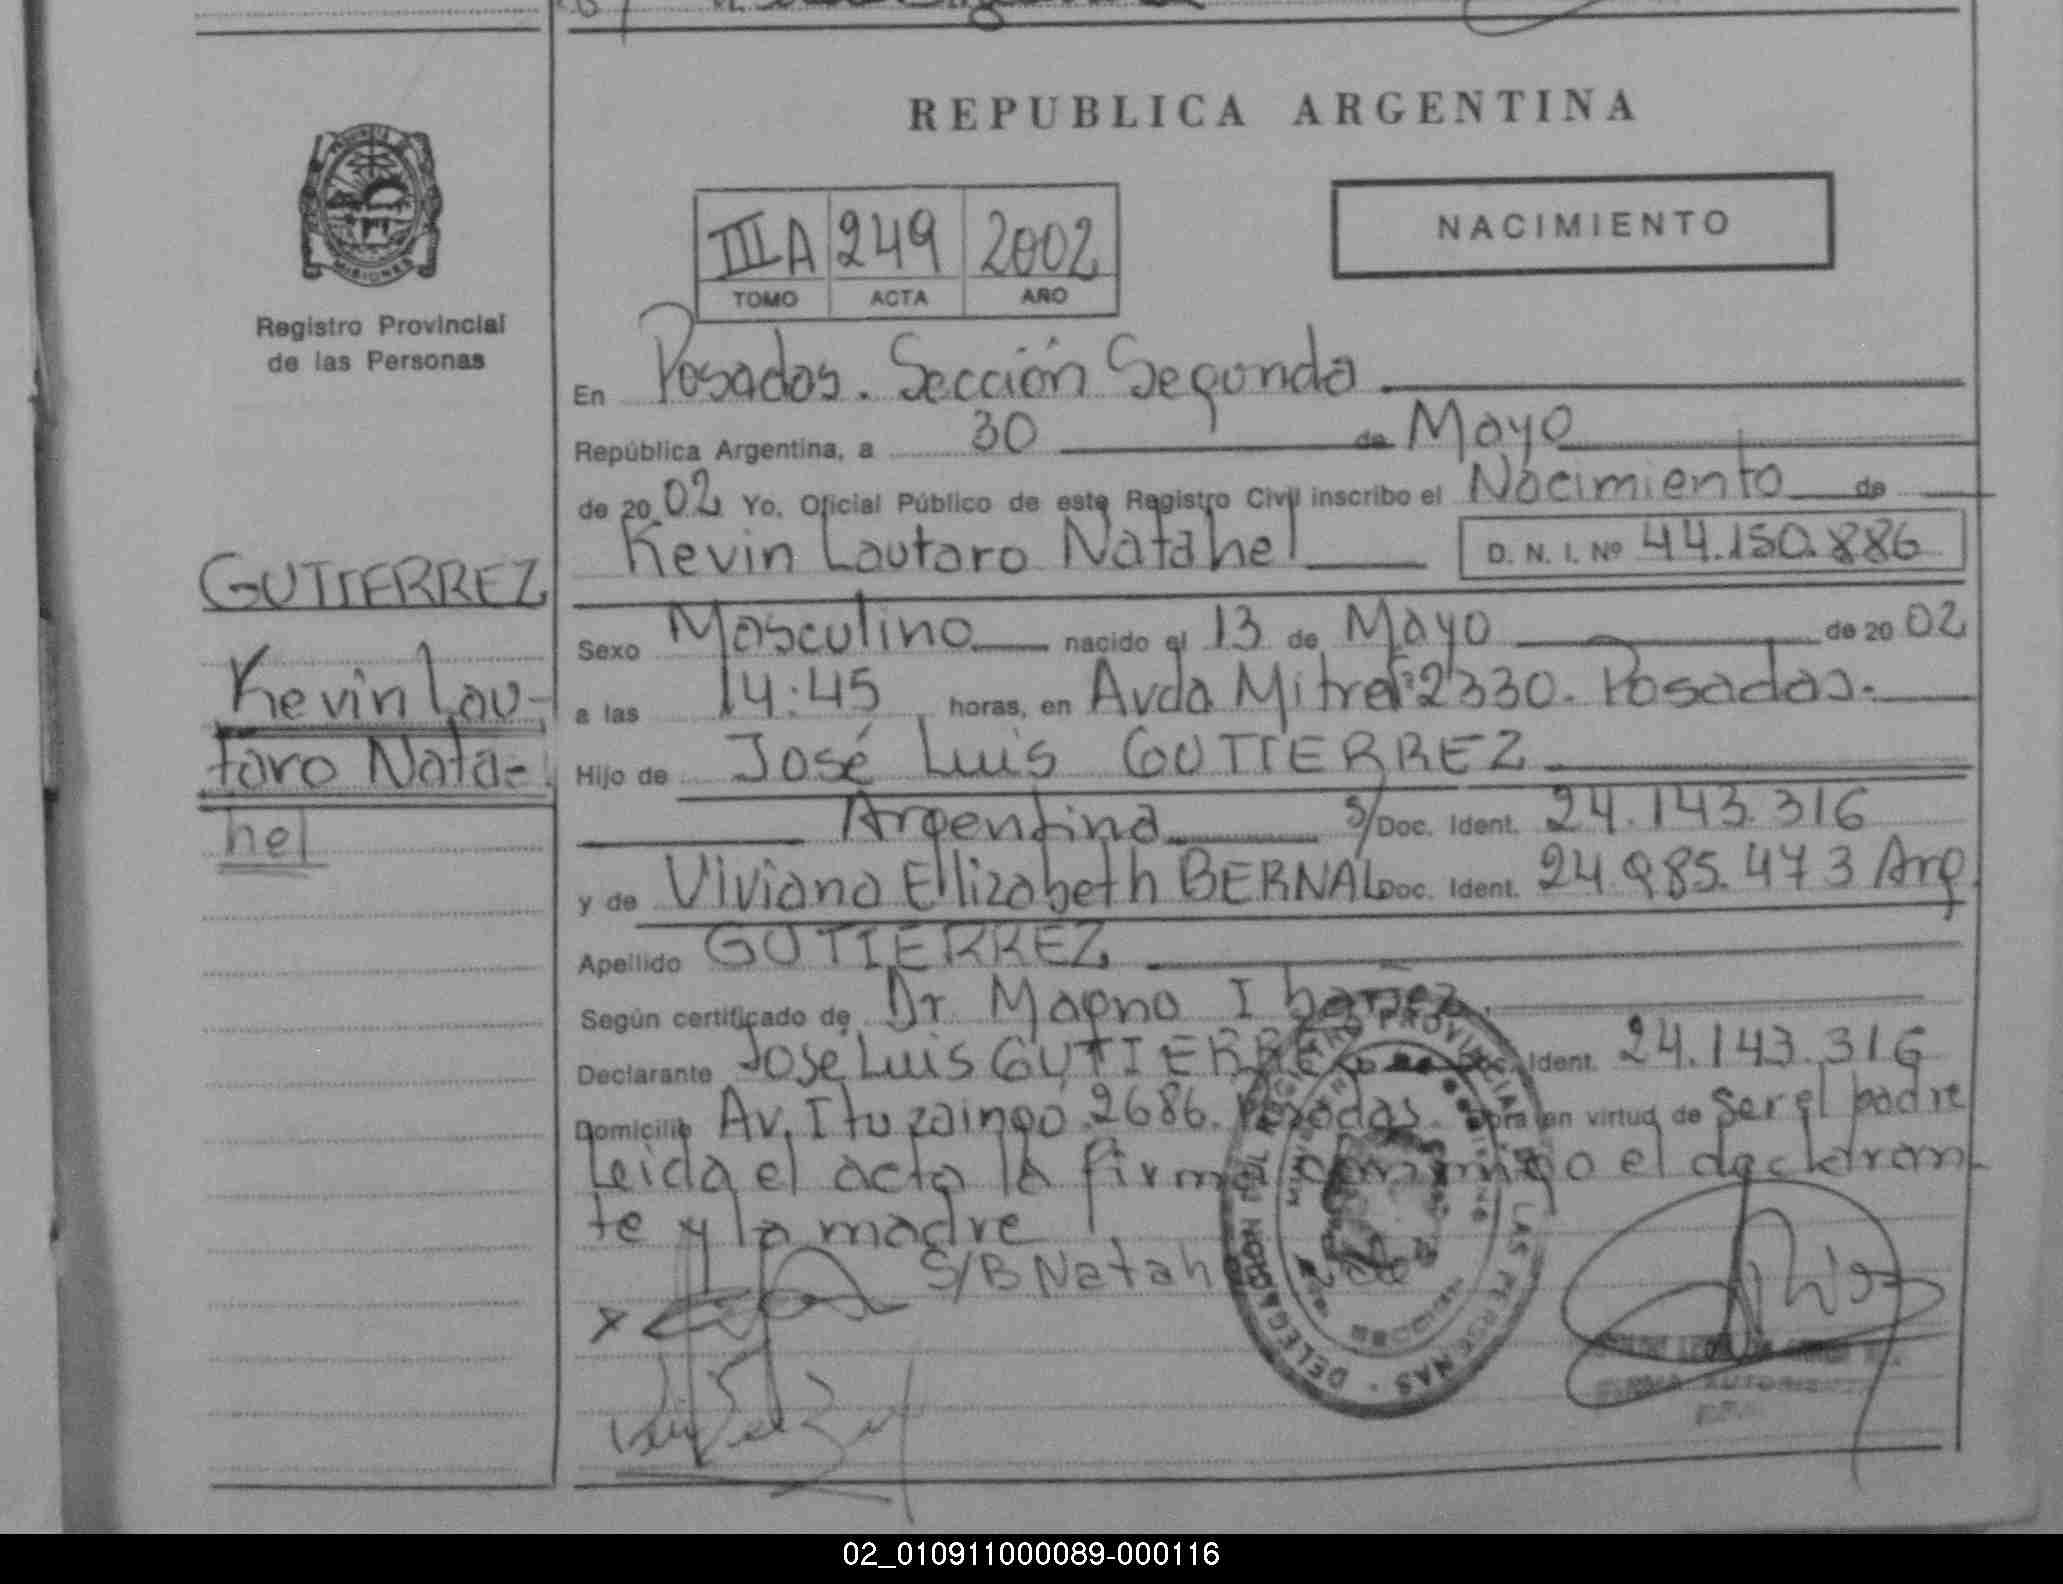 REPUBLICA ARGENTINA
NACIMIENTO
IIIA 249 2002
TOMO ACTA AÑO
Registro Provincial
de las Personas
MISIONES
GUTIERREZ
Kevin Lau-
taro Nata-
hel
En Posadas. Sección Segunda
República Argentina, a 30 de Mayo
de 2002 Yo, Oficial Público de este Registro Civil inscribo el Nacimiento de
Kevin Lautaro Natahel D. N. I. Nº 44.150.886
Sexo Masculino nacido el 13 de Mayo de 2002
a las 14:45 horas, en Avda Mitre Nº 2330. Posadas.
Hijo de José Luis GUTIERREZ
Argentina s/Doc. Ident. 24.143.316
y de Viviana Ellizabeth BERNAL Doc. Ident. 24.985.473 Arg
Apellido GUTIERREZ
Según certificado de Dr. Magno Ibarrez
Declarante José Luis GUTIERREZ Doc. Ident. 24.143.316
Domicilio Av. Ituzaingo 2686. Posadas. obra en virtud de ser el padre
Leida el acta la firma conmigo el declaran
te y la madre
S/B Natahel
REGISTRO PROVINCIAL DE LAS PERSONAS
FIRMA AUTORIZADA
02_010911000089-000116